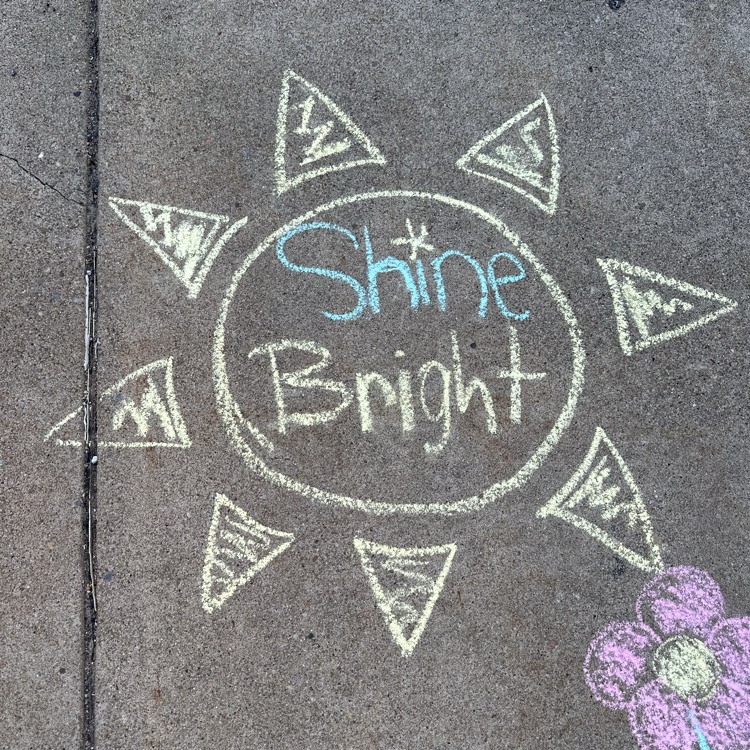 Shine
Bright